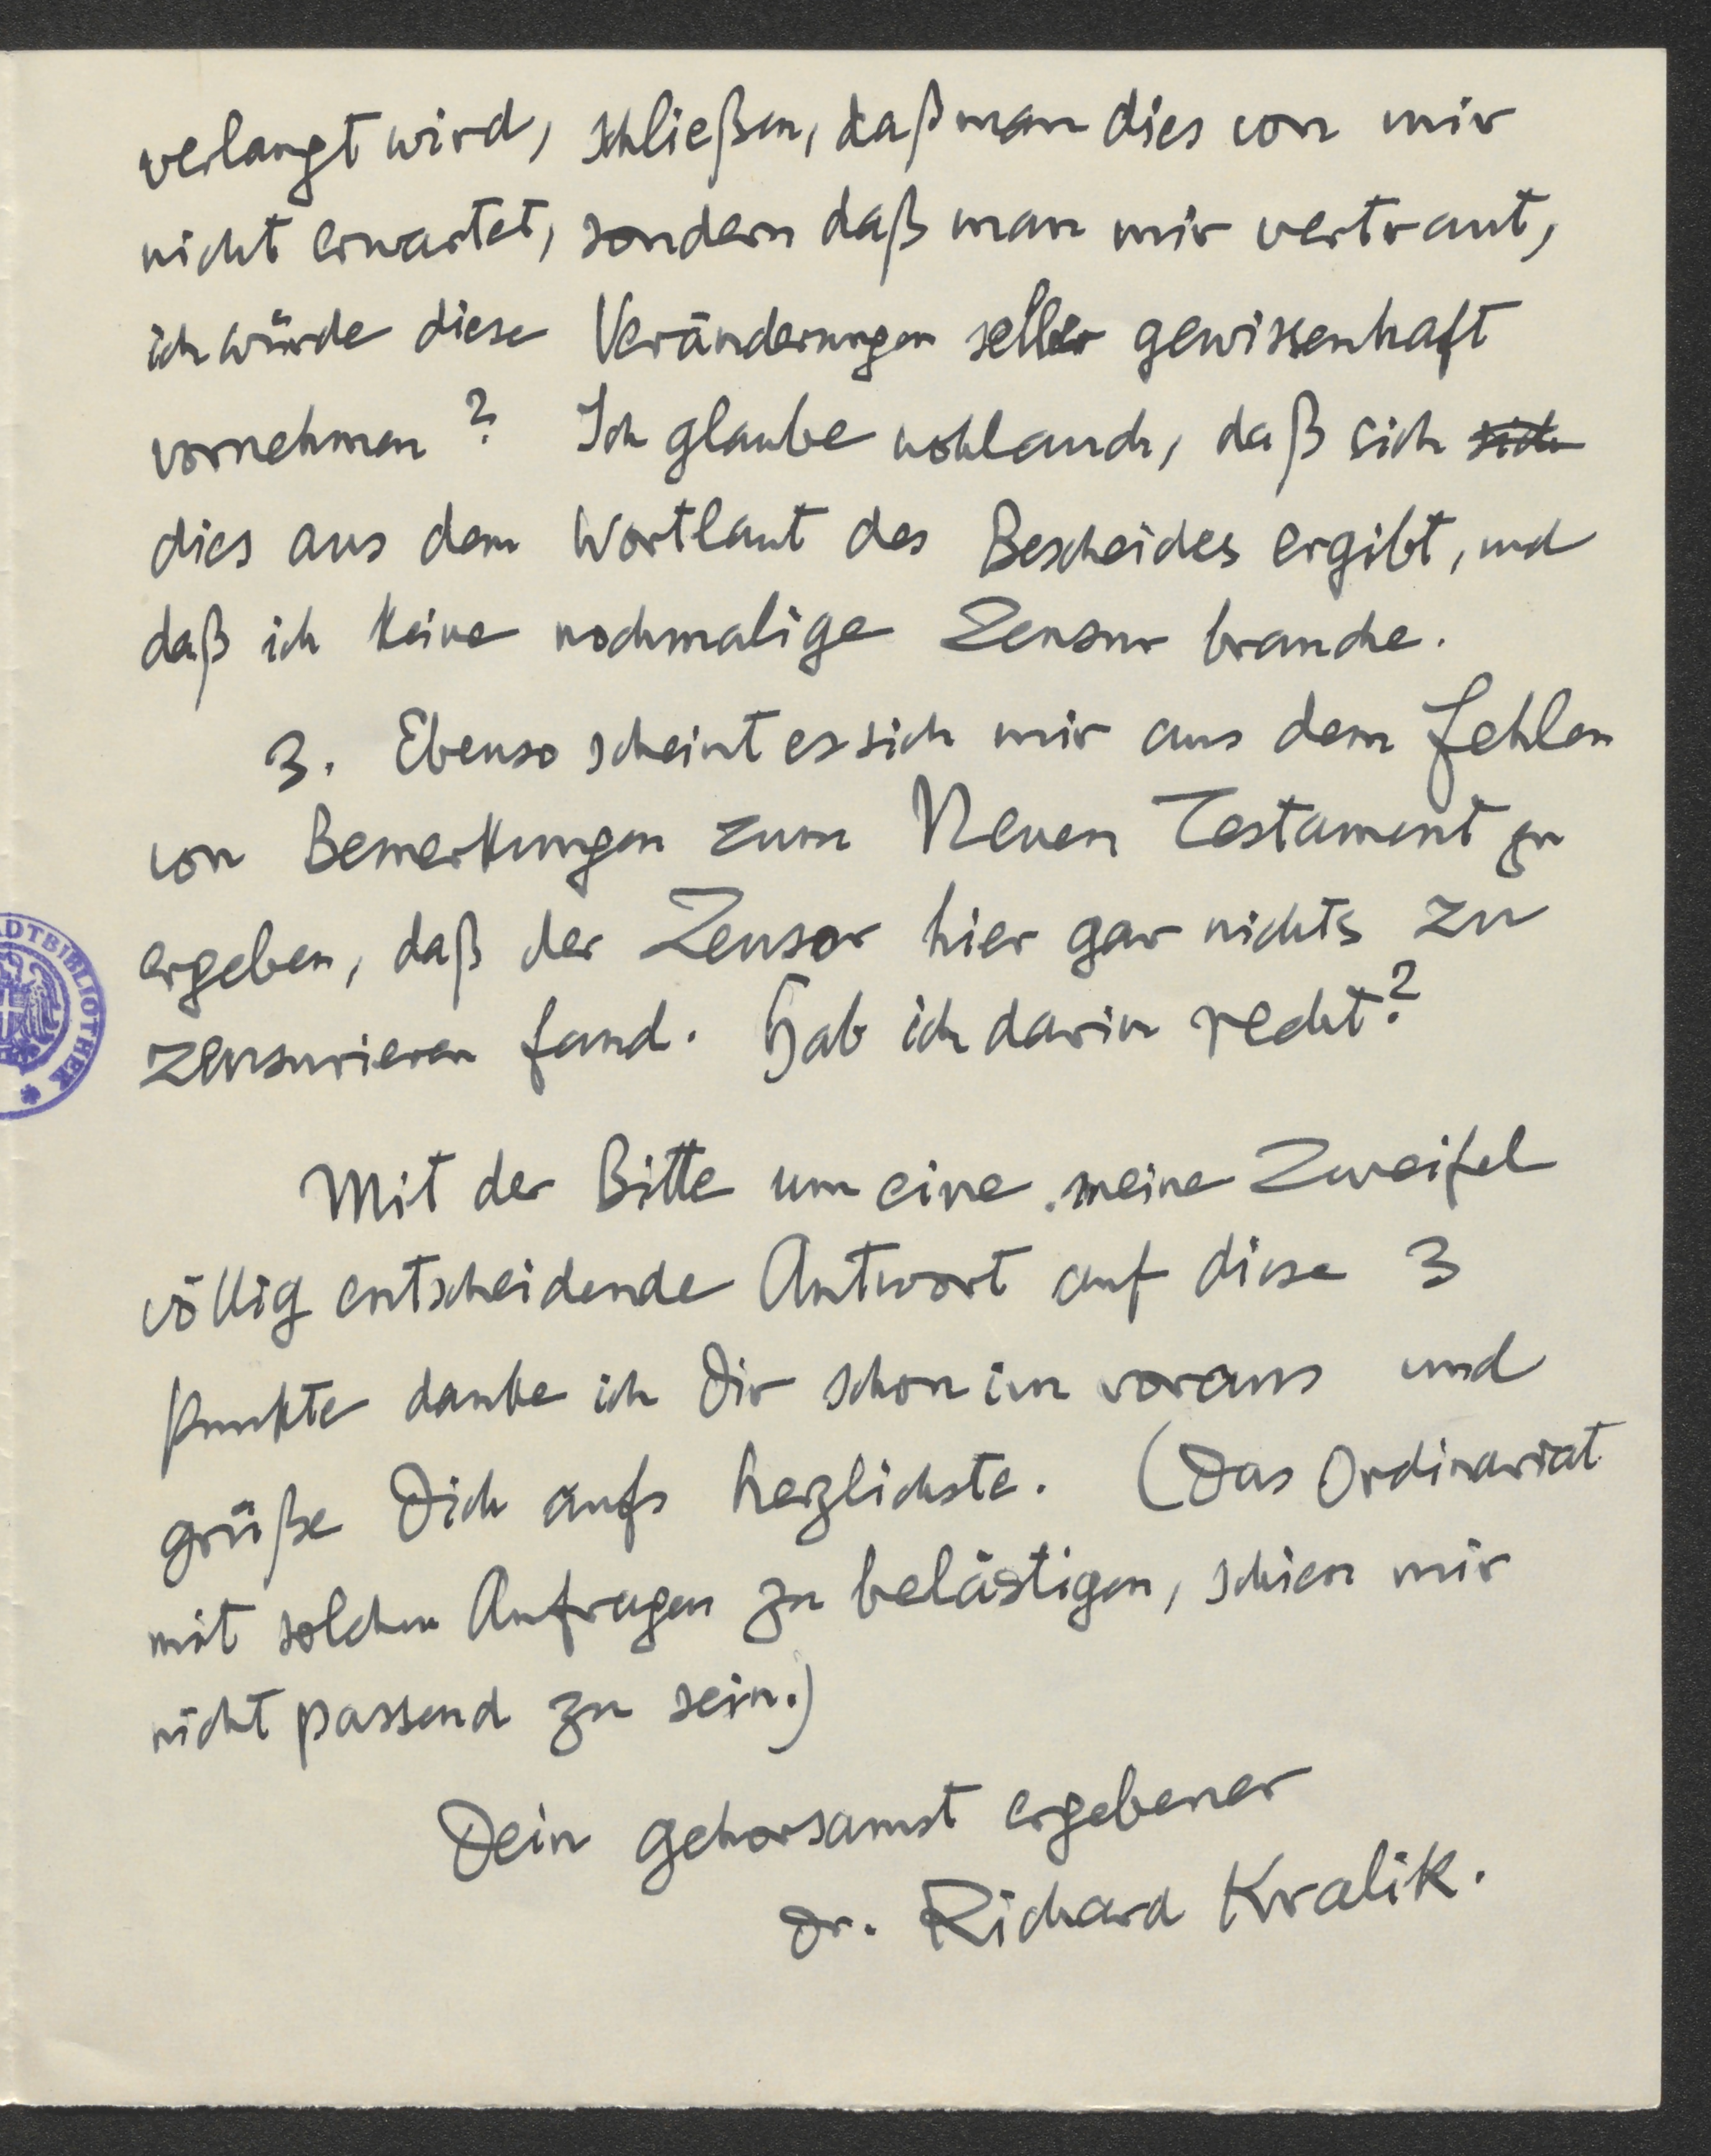 verlangt wird, schließen, daß man dies von mir
nicht erwartet, sondern daß man mir vertraut,
ich würde diese Veränderungen selber gewissenhaft
vornehmen? Ich glaube wohl auch, daß sich sich
dies aus dem Wortlaut des Bescheides ergibt, und
daß ich keine nochmalige Zensur brauche.
3. Ebenso scheint es sich mir aus dem Fehlen
von Bemerkungen zum Neuen Testament zu
ergeben, daß der Zensor hier gar nichts zu
zensurieren fand. Hab ich darin recht?
ADTBIBLIOTHEK *
Mit der Bitte um eine meine Zweifel
völlig entscheidende Antwort auf diese 3
Punkte danke ich Dir schon im voraus und
grüße Dich aufs herzlichste. (Das Ordinariat
mit solchen Anfragen zu belästigen, schien mir
nicht passend zu sein.)
Dein gehorsamst ergebener
Dr. Richard Kralik.